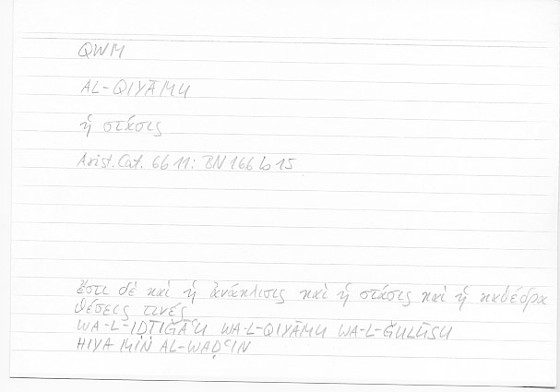 QWM
AL-QIYĀMU
ἡ στάσις
Arist. Cat. 6b11: BN 166b15
ἔστι δὲ καὶ ἡ ἀνάκλισις καὶ ἡ στάσις καὶ ἡ καθέδρα
θέσεις τινές
WA-L-IḌṬIĞĀʿU WA-L-QIYĀMU WA-L-ĞULŪSU
HIYA MIN AL-WAḌʿIN